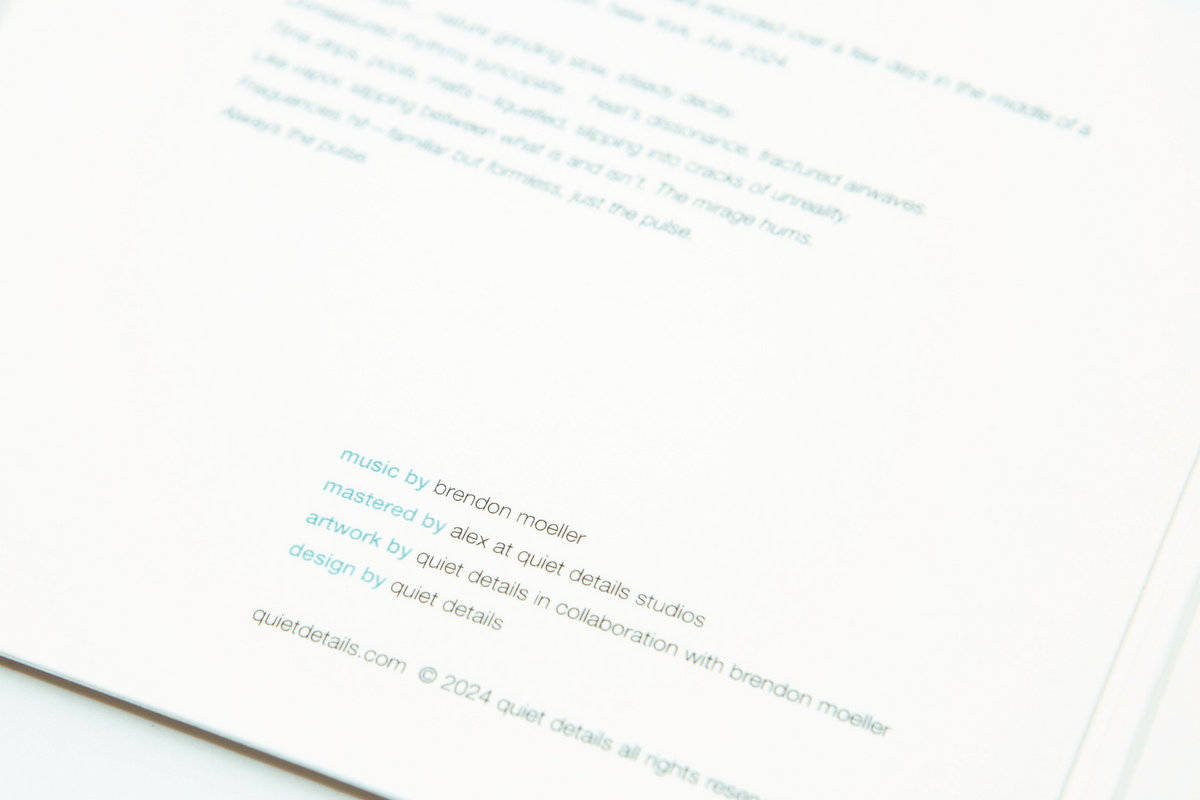 recorded over a few days in the middle of a
New York, July 2024.
nature grinding slow, steady decay.
Unmeasured rhythms syncopate... heat's dissonance, fractured airwaves.
Time drips, pools, melts – liquefied, slipping into cracks of unreality.
Like vapor, slipping between what is and isn't. The mirage hums.
Frequencies hit – familiar but formless, just the pulse.
Always the pulse.
music by brendon moeller
mastered by alex at quiet details studios
artwork by quiet details in collaboration with brendon moeller
design by quiet details
quietdetails.com © 2024 quiet details all rights reser